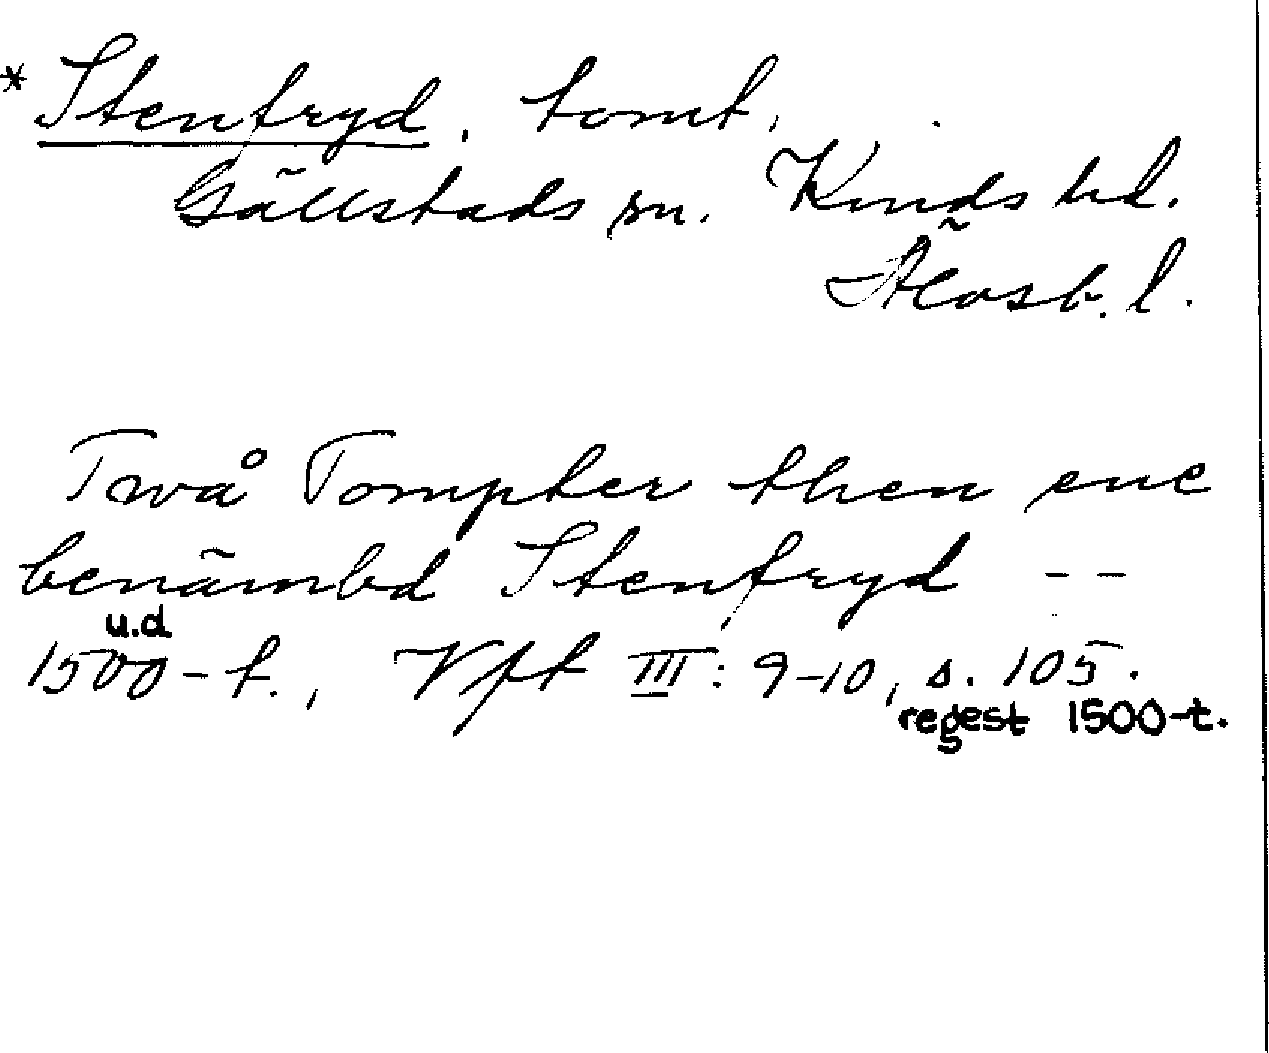 *Stenfryd, tomt,
Gällstads sn. Kinds hd.
Älvsb. l.
Twå Tompter then ene
benämbd Stenfryd --
u.d
1500-t., Vft III: 9-10, s. 105.
regest 1500-t.